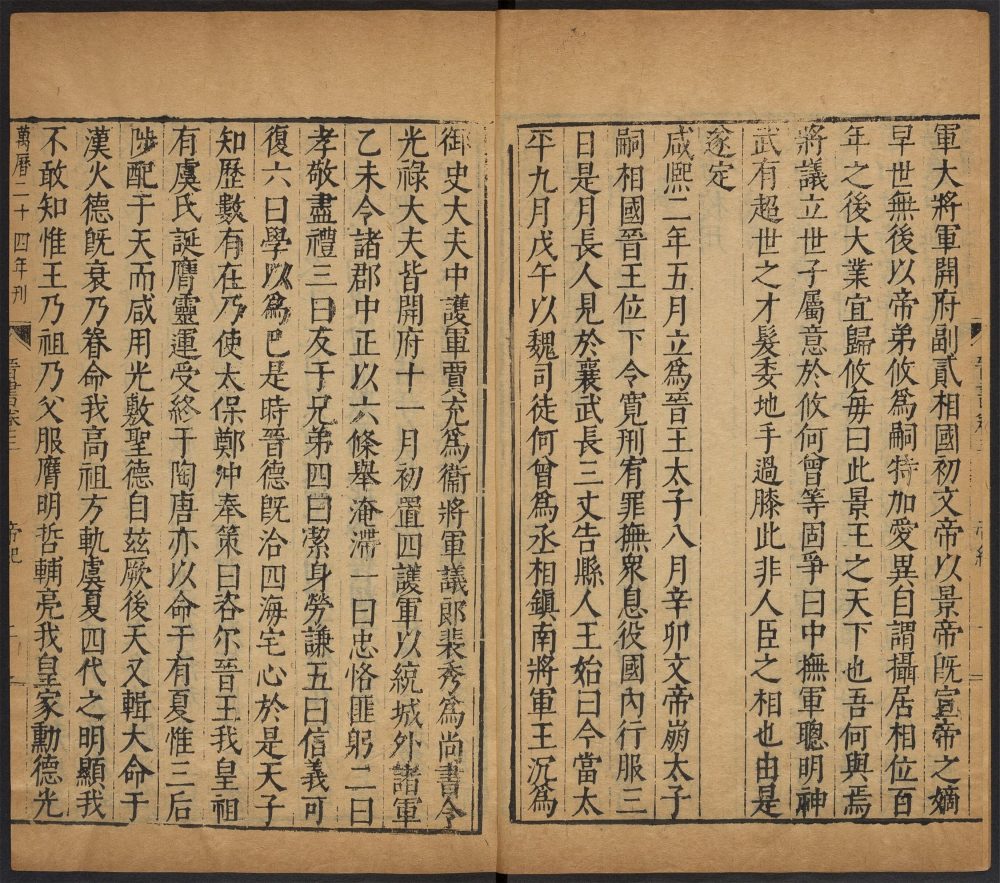 軍大將軍開府副貳相國初文帝以景帝旣宣帝之嫡
早世無後以帝弟攸爲嗣特加愛異自謂攝居相位百
年之後大業宜歸攸每曰此景王之天下也吾何與焉
將議立世子屬意於攸何曾等固爭曰中撫軍聰明神
武有超世之才髮委地手過膝此非人臣之相也由是
遂定
咸熈二年五月立爲晉王太子八月辛卯文帝崩太子
嗣相國晉王位下令寛刑宥罪撫衆息役國內行服三
日是月長人見於襄武長三丈告縣人王始曰今當太
平九月戊午以魏司徒何曾爲丞相鎮南將軍王沉爲
御史大夫中護軍賈充爲衞將軍議郎裴秀爲尚書令
光祿大夫皆開府十一月初置四護軍以統城外諸軍
乙未令諸郡中正以六條舉淹滯一曰忠恪匪躬二曰
孝敬盡禮三曰友于兄弟四曰潔身勞謙五曰信義可
復六曰學以爲巳是時晉德旣洽四海宅心於是天子
知歷數有在乃使太保鄭沖奉策曰咨尔晉王我皇祖
有虞氏誕膺靈運受終于陶唐亦以命于有夏惟三后
陟配于天而咸用光敷聖德自玆厥後天又輯大命于
漢火德旣衰乃眷命我高祖方軌虞夏四代之明顯我
不敢知惟王乃祖乃父服膺明哲輔亮我皇家勳德光
萬曆二十四年刊
晉書卷三
帝紀